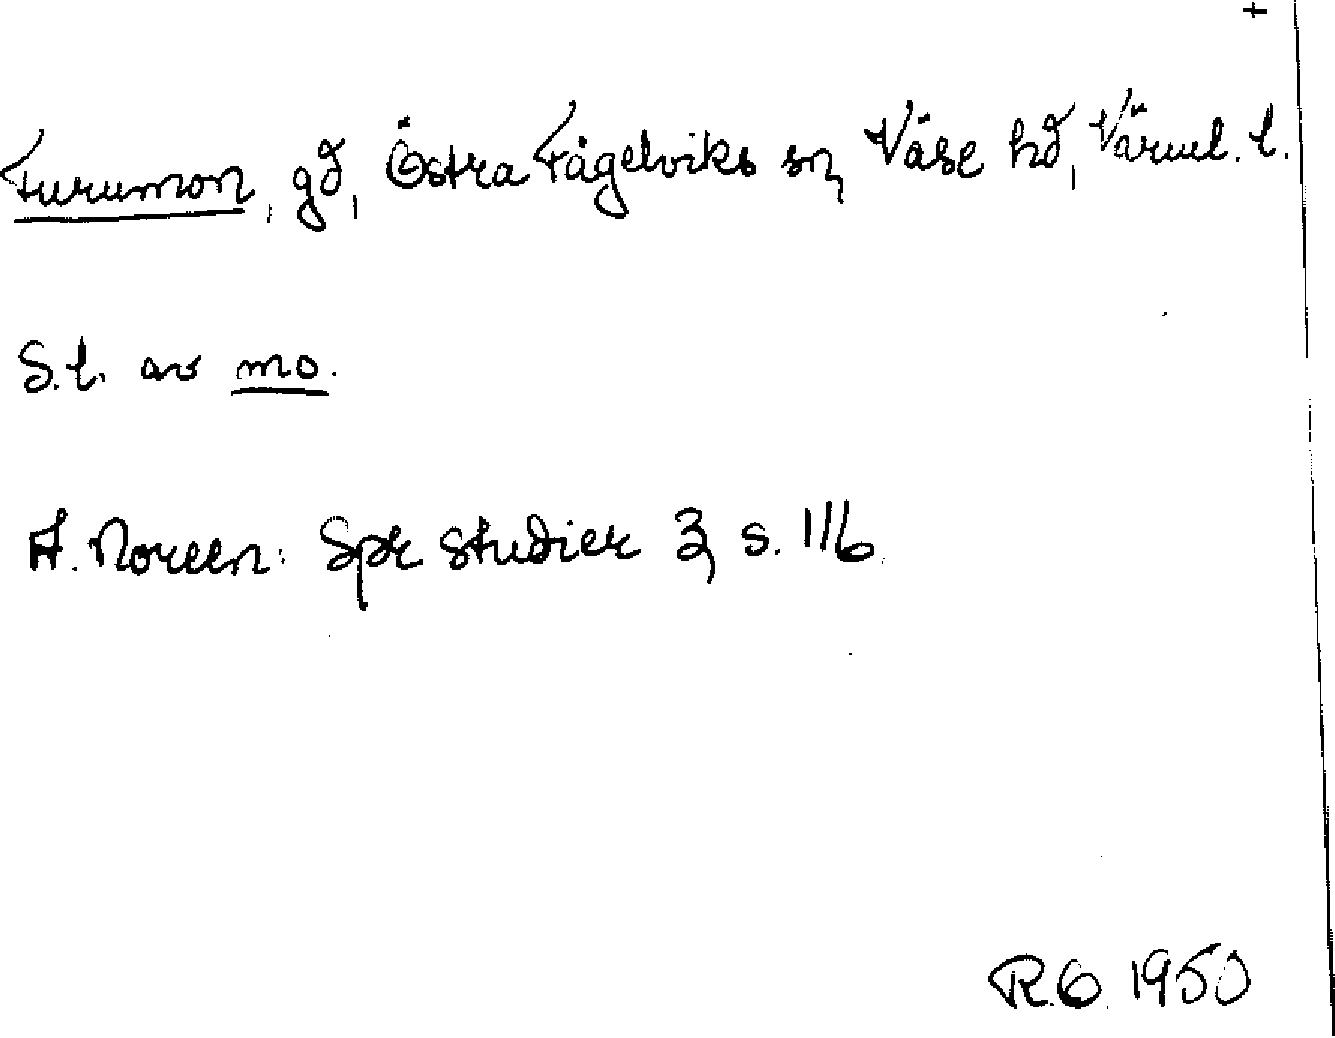 +
Furumon, gd, Östra Fågelviks sn, Väse hd, Värml. l.
S.l. av mo.
A. Noreen: Spr studier 3, s. 116.
R.Ö. 1950